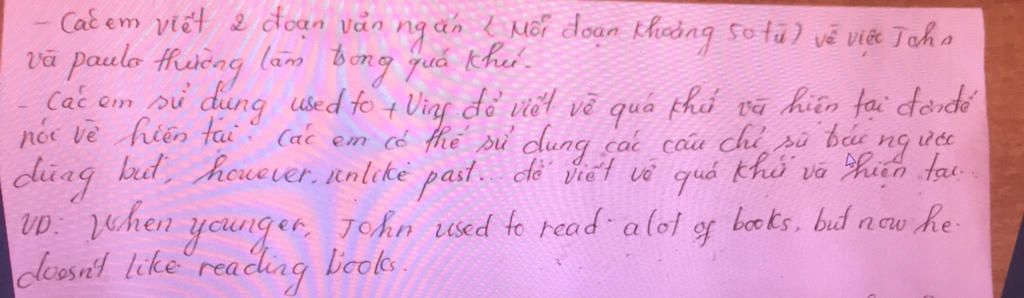 - Các em viết 2 đoạn văn ngắn (Mỗi đoạn khoảng 50 từ) về việc John
và paula thường làm trong quá khứ.
- Các em sử dụng used to + Ving để viết về quá khứ và hiện tại đơn để
nói về hiện tại. Các em có thể sử dụng các câu chỉ sự bác ngược
dùng but, however, unlike past... để viết về quá khứ và hiện tại.
VD: When younger, John used to read a lot of books, but now he
doesn't like reading books.